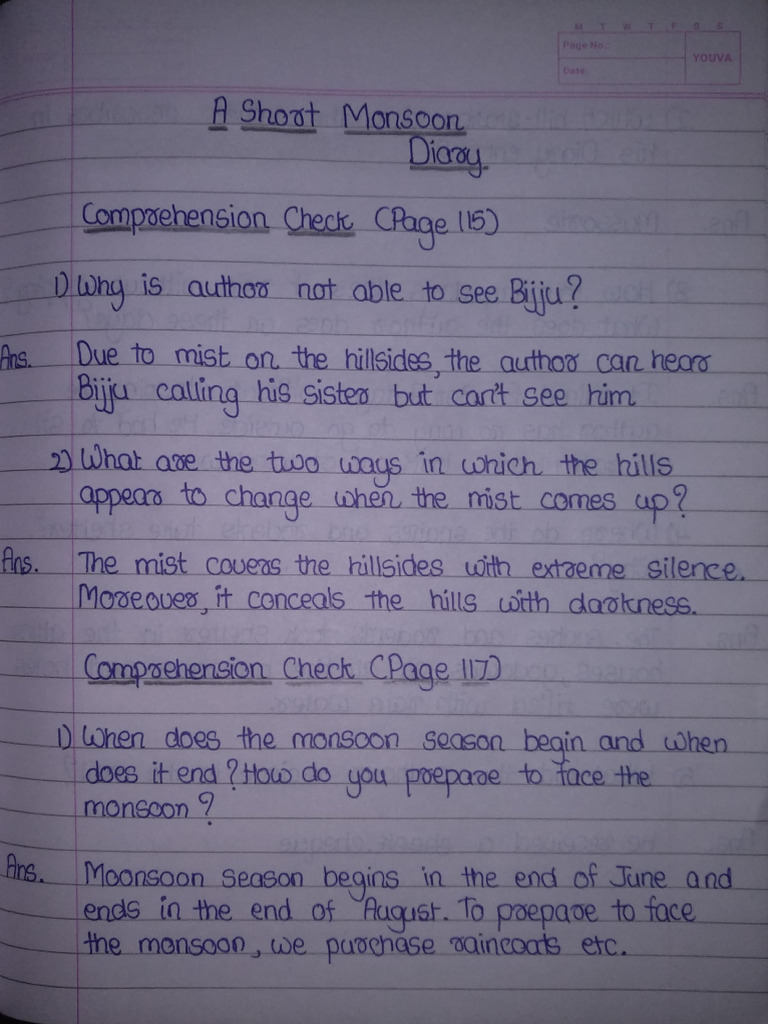 M T W T F S S
Page No.:
YOUVA
Date:
A Short Monsoon
Diary.
Comprehension Check (Page 115)
1) Why is author not able to see Bijju?
Ans. Due to mist on the hillsides, the author can hear
Bijju calling his sister but can't see him
2) What are the two ways in which the hills
appear to change when the mist comes up?
Ans. The mist covers the hillsides with extreme silence.
Moreover, it conceals the hills with darkness.
Comprehension Check (Page 117)
1) When does the monsoon season begin and when
does it end? How do you prepare to face the
monsoon?
Ans. Moonsoon season begins in the end of June and
ends in the end of August. To prepare to face
the monsoon, we purchase raincoats etc.